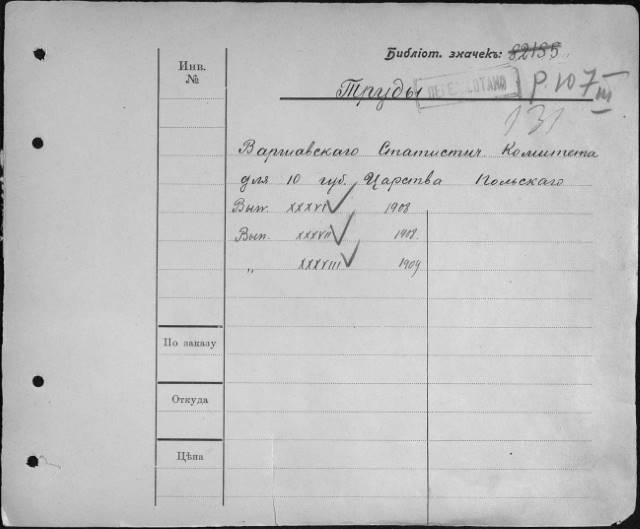 Библіот. значекъ: 82135
Инв.
№
Труды
ПЕРЕРАБОТАНО
Р. 107
III
131
Варшавскаго Статистич. Комитета
для 10 губ. Царства Польскаго
Вып. XXXVI 1908
Вып. XXXVII 1908.
„ XXXVIII 1909
По заказу
Откуда
Цѣна